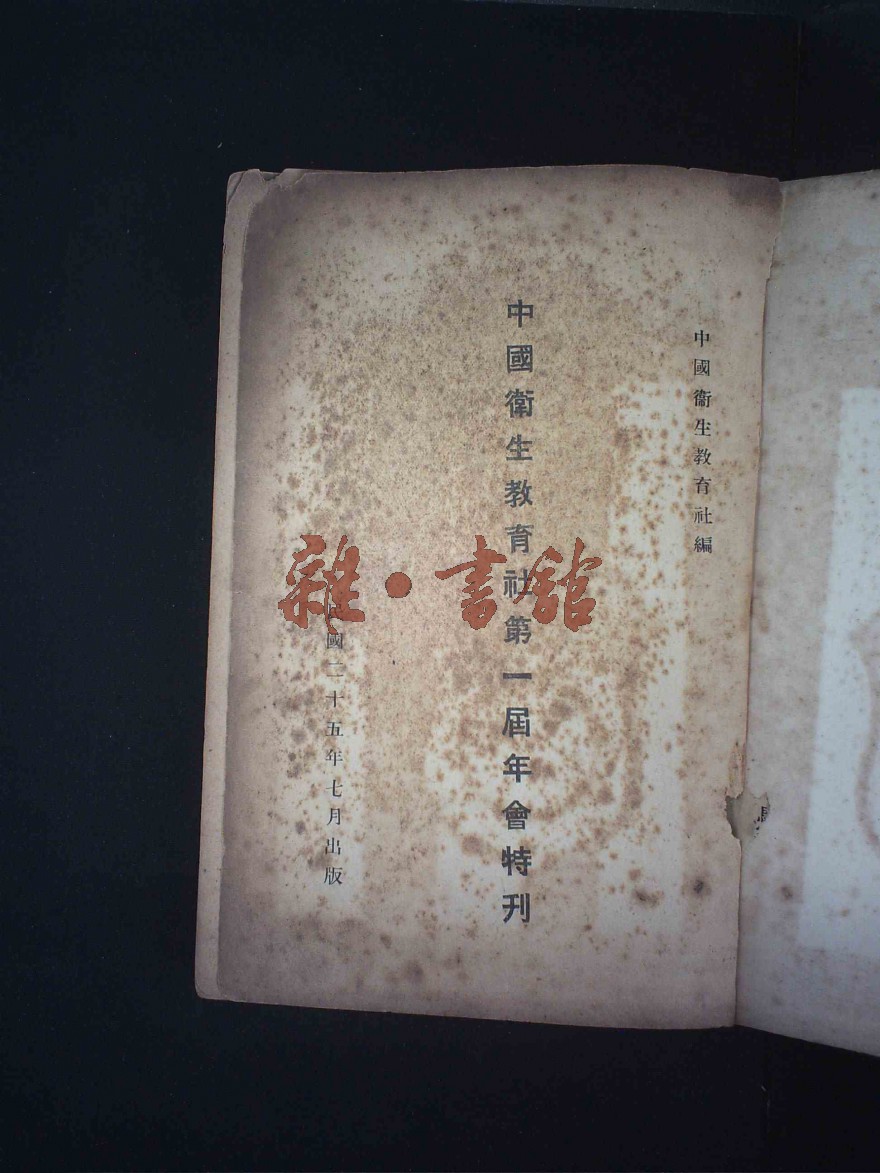 中國衞生教育社編
中國衛生教育社第一屆年會特刊
民國二十五年七月出版
雜·書館